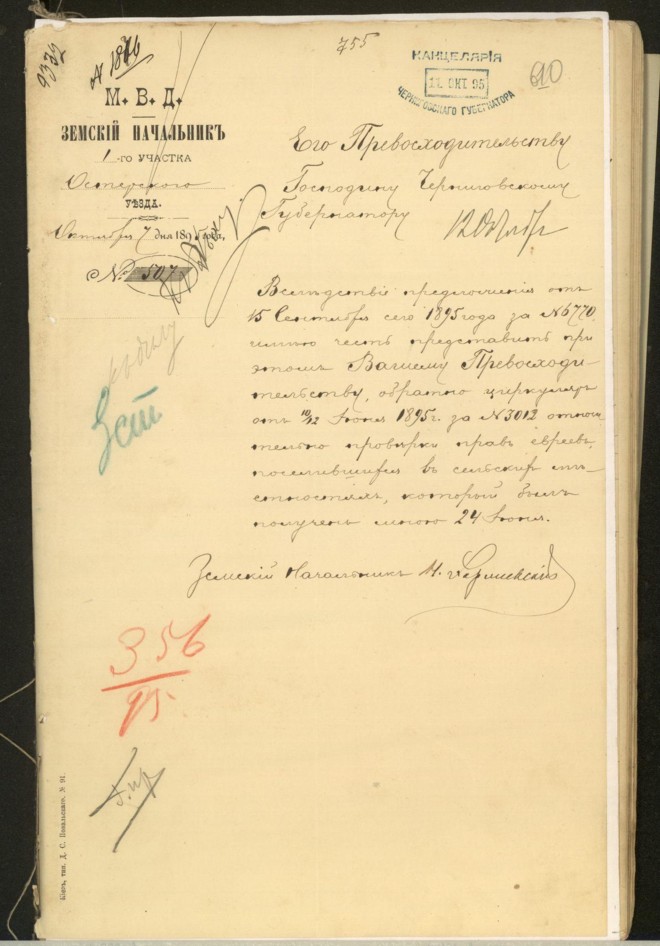 755
КАНЦЕЛЯРІЯ
11 ОКТ. 95
ЧЕРНИГОВСКАГО ГУБЕРНАТОРА
610
№ 1876
М. В. Д.
ЗЕМСКІЙ НАЧАЛЬНИКЪ
1-го УЧАСТКА
Остерскаго
УѢЗДА.
Октября 7 дня 1895 года,
№ 507
Его Превосходительству
Господину Черниговскому
Губернатору
12 Октбр
Вслѣдствіе предложенія отъ
15 Сентября сего 1895 года за № 6770,
имѣю честь представить при
этомъ Вашему Превосходи-
тельству, обратно циркуляръ
отъ 10/12 Іюня 1895 г. за № 3012 относи
тельно провѣрки правъ евреевъ,
поселившихся въ сельскихъ мѣ-
стностяхъ, который былъ
полученъ мною 24 Іюня.
Земскій Начальникъ
356
95.
Кіевъ, тип. Д. С. Повальскаго. № 91.